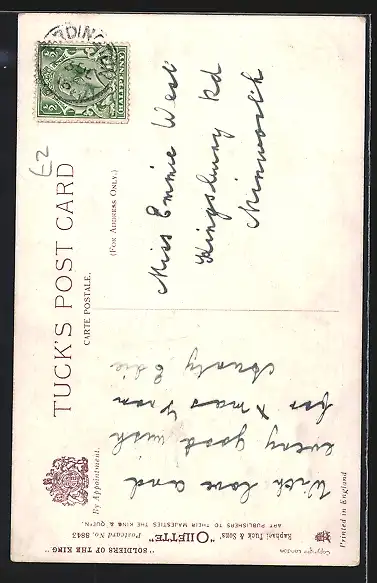 TUCK'S POST CARD
CARTE POSTALE.
(FOR ADDRESS ONLY.)
By Appointment.
£2
HALFPENNY
Miss Emmie West
Kingsbury Rd
Minworth
With love and
every good wish
for Xmas from
Aunty Edie
"SOLDIERS OF THE KING"
Postcard No. 8843
Raphael Tuck & Sons' "OILETTE"
ART PUBLISHERS TO THEIR MAJESTIES THE KING & QUEEN.
Copyright London
Printed in England